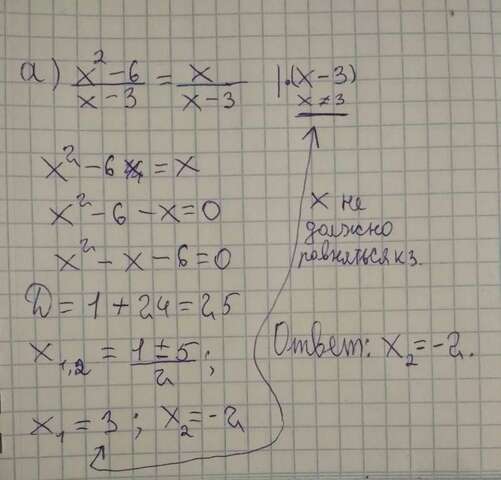 а) x²-6 / x-3 = x / x-3 |·(x-3)
x≠3
x²-6 = x
x²-6-x=0
x²-x-6=0
D=1+24=25
x₁,₂ = 1±5 / 2 ;
x₁=3 ; x₂=-2
x не
должно
равняться к 3.
Ответ: x₂=-2.